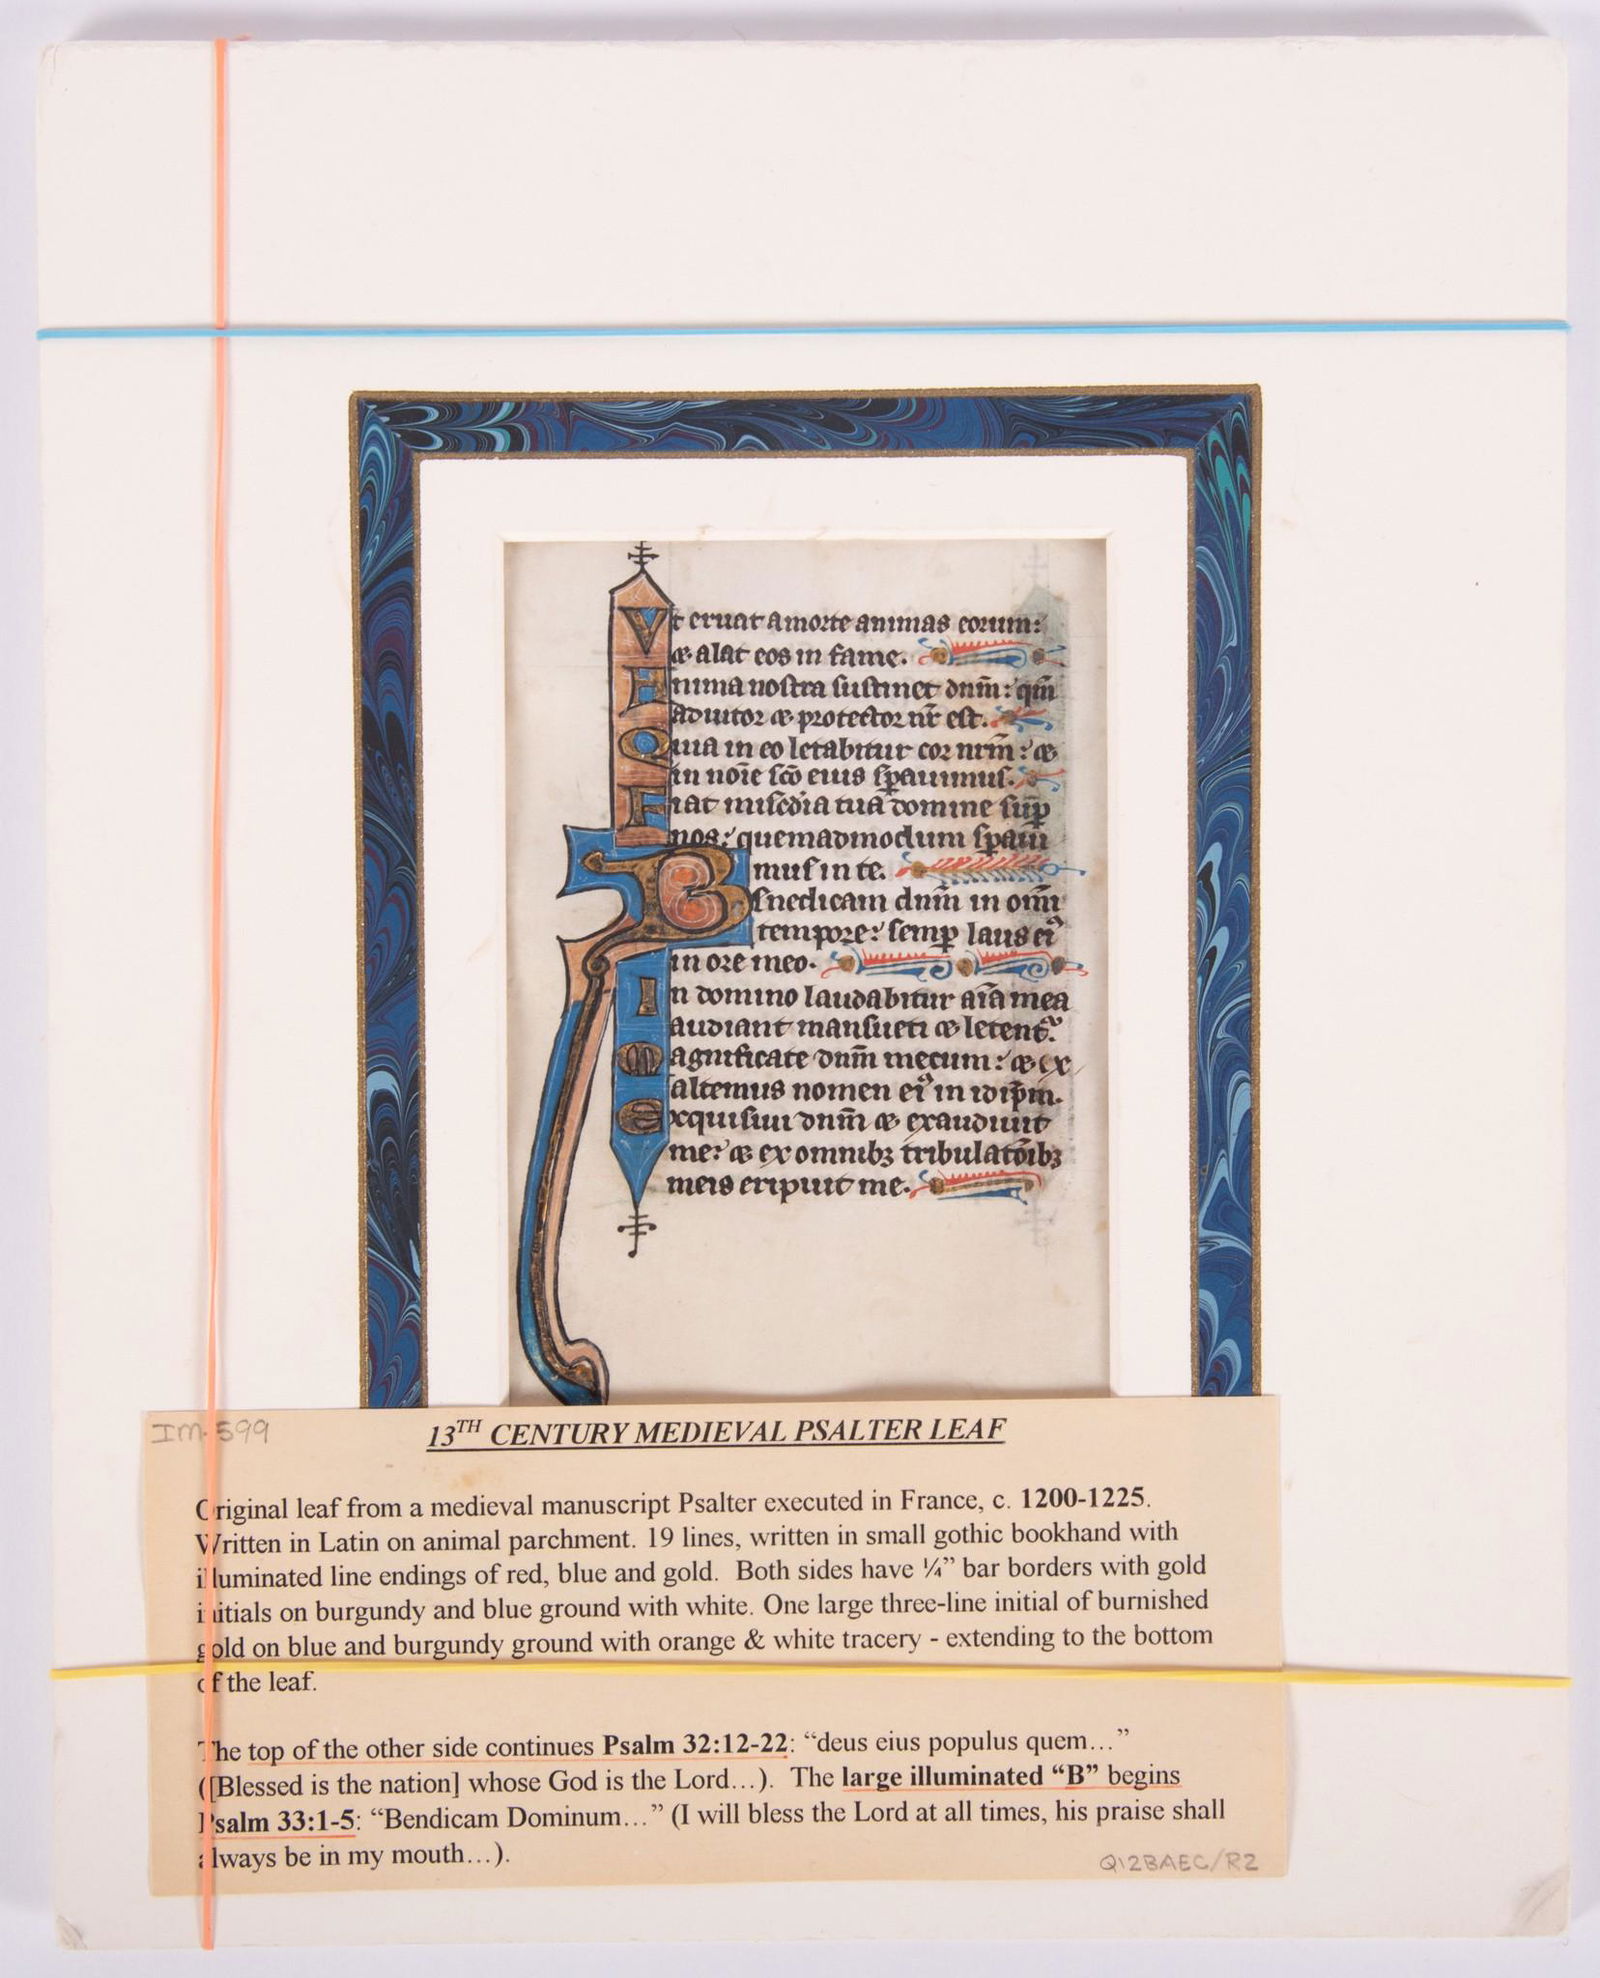 Vt eruat a morte animas eorum:
⁊ alat eos in fame.
Anima nostra sustinet dnm̄: qm̄
adiutor ⁊ protector nr̄ est.
Quia in eo letabitur cor nrm̄: ⁊
in noīe scō eius sꝑauimus.
Fiat misc̄dia tua domine suꝑ
nos: quemadmodum sꝑaui
mus in te.
Benedicam dnm̄ in omī
tempore: semꝑ laus eiꝰ
in ore meo.
In domino laudabitur aīa mea
audiant mansueti ⁊ letent᷑.
Magnificate dnm̄ mecum: ⁊ ex
altemus nomen eiꝰ in idip̄m.
Exquisiui dnm̄ ⁊ exaudiuit
me: ⁊ ex omnibꝫ tribulatōibꝫ
meis eripuit me.
IM-599
13TH CENTURY MEDIEVAL PSALTER LEAF
Original leaf from a medieval manuscript Psalter executed in France, c. 1200-1225.
Written in Latin on animal parchment. 19 lines, written in small gothic bookhand with
illuminated line endings of red, blue and gold. Both sides have ¼” bar borders with gold
initials on burgundy and blue ground with white. One large three-line initial of burnished
gold on blue and burgundy ground with orange & white tracery - extending to the bottom
of the leaf.
The top of the other side continues Psalm 32:12-22: “deus eius populus quem…”
([Blessed is the nation] whose God is the Lord…). The large illuminated “B” begins
Psalm 33:1-5: “Bendicam Dominum…” (I will bless the Lord at all times, his praise shall
always be in my mouth…).
Q12BAEC/R2